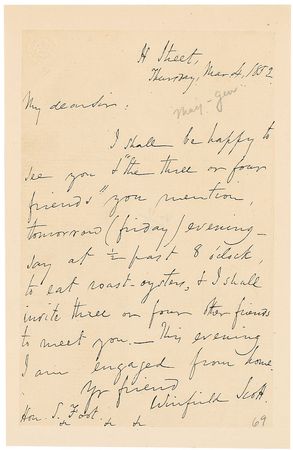 H Street,
Thursday, Mar 4, 1852.
My dear Sir:
Maj-Gen:
I shall be happy to
see you & "the three or four
friends" you mention,
tomorrow (friday) evening—
say at ½ past 8 o'clock,
to eat roast-oysters, & I shall
invite three or four other friends
to meet you.— This evening
I am engaged from home.
Yr friend
Winfield Scott.
Hon. S. Foot.
69